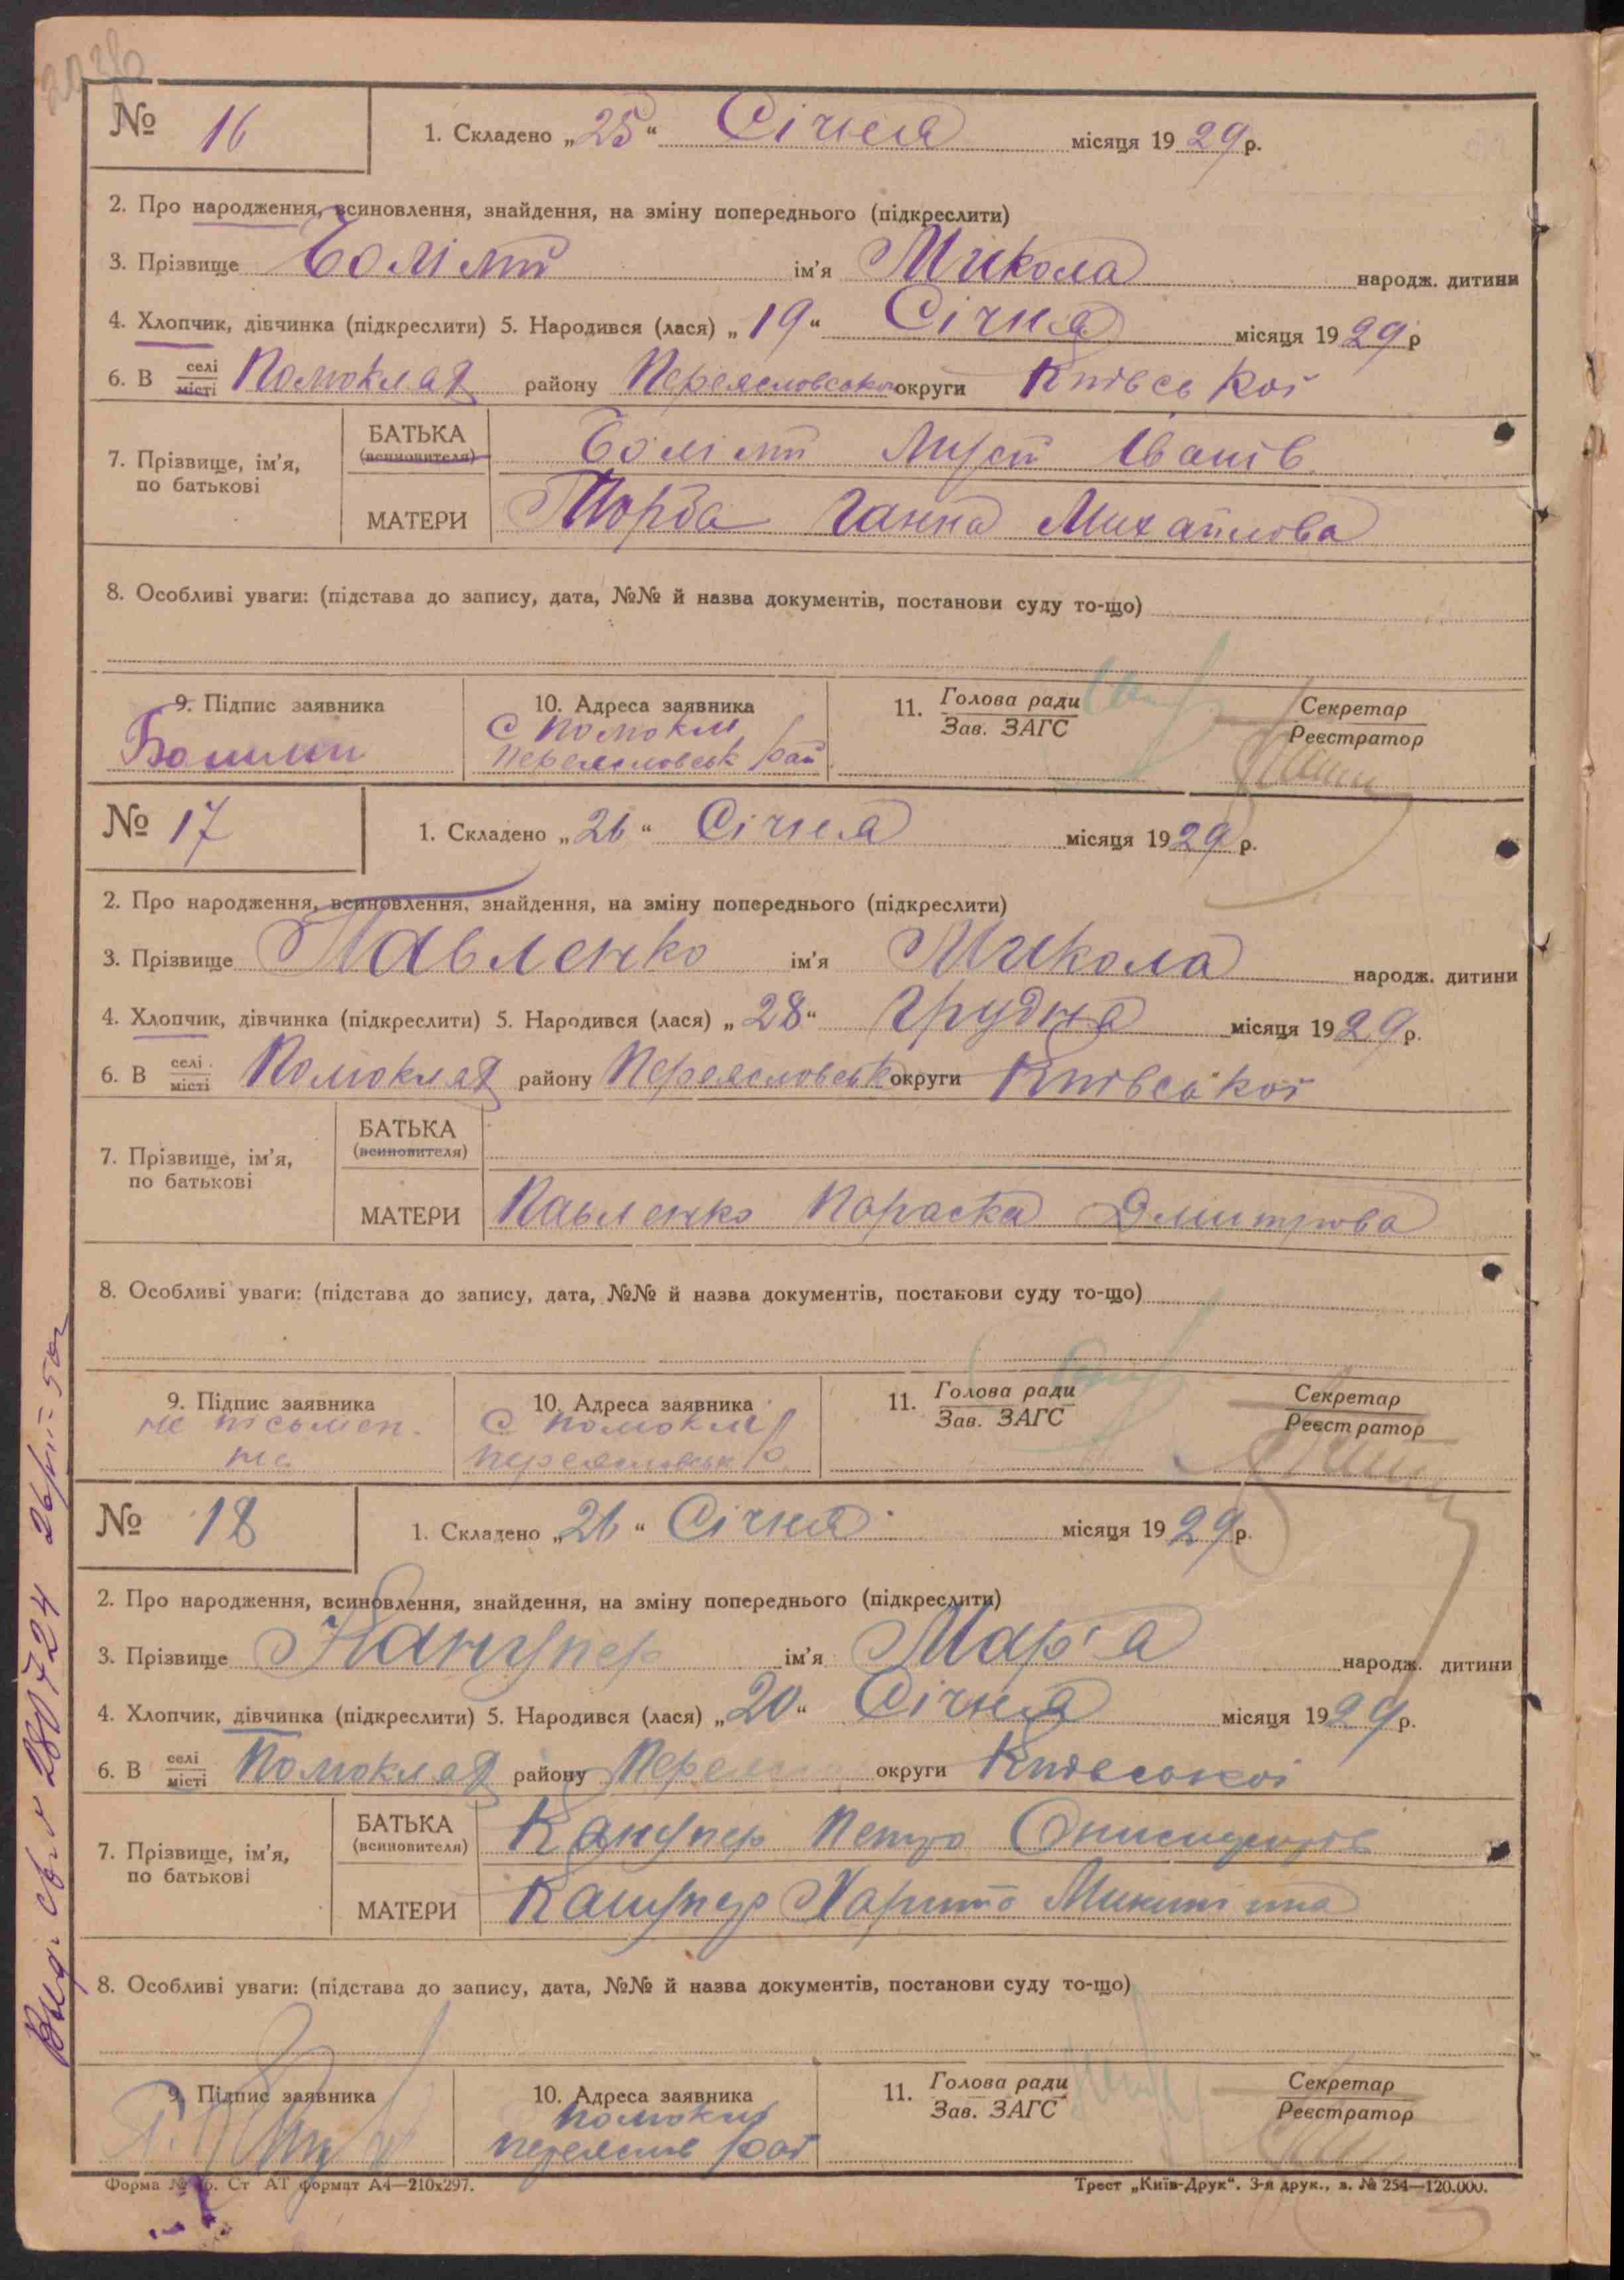 № 16
1. Складено „25“ Січня місяця 1929 р.
2. Про народження, всиновлення, знайдення, на зміну попереднього (підкреслити)
3. Прізвище ім'я Микола народж. дитини
4. Хлопчик, дівчинка (підкреслити) 5. Народився (лася) „19“ Січня місяця 1929 р
6. В селі місті Помоклях району Переясловсько округи Київської
7. Прізвище, ім'я, по батькові
БАТЬКА (всиновителя) Іванів
МАТЕРИ Торба Ганна Михайлова
8. Особливі уваги: (підстава до запису, дата, №№ й назва документів, постанови суду то-що)
9. Підпис заявника
10. Адреса заявника
С Помокли
Переясловськ рай
11. Голова ради Зав. ЗАГС
Секретар Реєстратор
№ 17
1. Складено „26“ Січня місяця 1929 р.
2. Про народження, всиновлення, знайдення, на зміну попереднього (підкреслити)
3. Прізвище Павленко ім'я Микола народж. дитини
4. Хлопчик, дівчинка (підкреслити) 5. Народився (лася) „28“ Грудня місяця 1929 р.
6. В селі місті Помоклях району Переясловськ округи Київської
7. Прізвище, ім'я, по батькові
БАТЬКА (всиновителя)
МАТЕРИ Павленко Параска Дмитрова
8. Особливі уваги: (підстава до запису, дата, №№ й назва документів, постанови суду то-що)
9. Підпис заявника
не пісьмен-
на
10. Адреса заявника
С Помокли
Переясловськ р
11. Голова ради Зав. ЗАГС
Секретар Реєстратор
№ 18
1. Складено „26“ Січня місяця 1929 р.
2. Про народження, всиновлення, знайдення, на зміну попереднього (підкреслити)
3. Прізвище Канупер ім'я Мар'я народж. дитини
4. Хлопчик, дівчинка (підкреслити) 5. Народився (лася) „20“ Січня місяця 1929 р.
6. В селі місті Помоклях району округи Київської
7. Прізвище, ім'я, по батькові
БАТЬКА (всиновителя) Канупер Петро
МАТЕРИ Канупер Харитя
8. Особливі уваги: (підстава до запису, дата, №№ й назва документів, постанови суду то-що)
9. Підпис заявника
10. Адреса заявника
Помокли
Переяслів рай
11. Голова ради Зав. ЗАГС
Секретар Реєстратор
Форма № Ст АТ формат А4—210х297.
Трест „Київ-Друк“. 3-я друк., з. № 254—120.000.